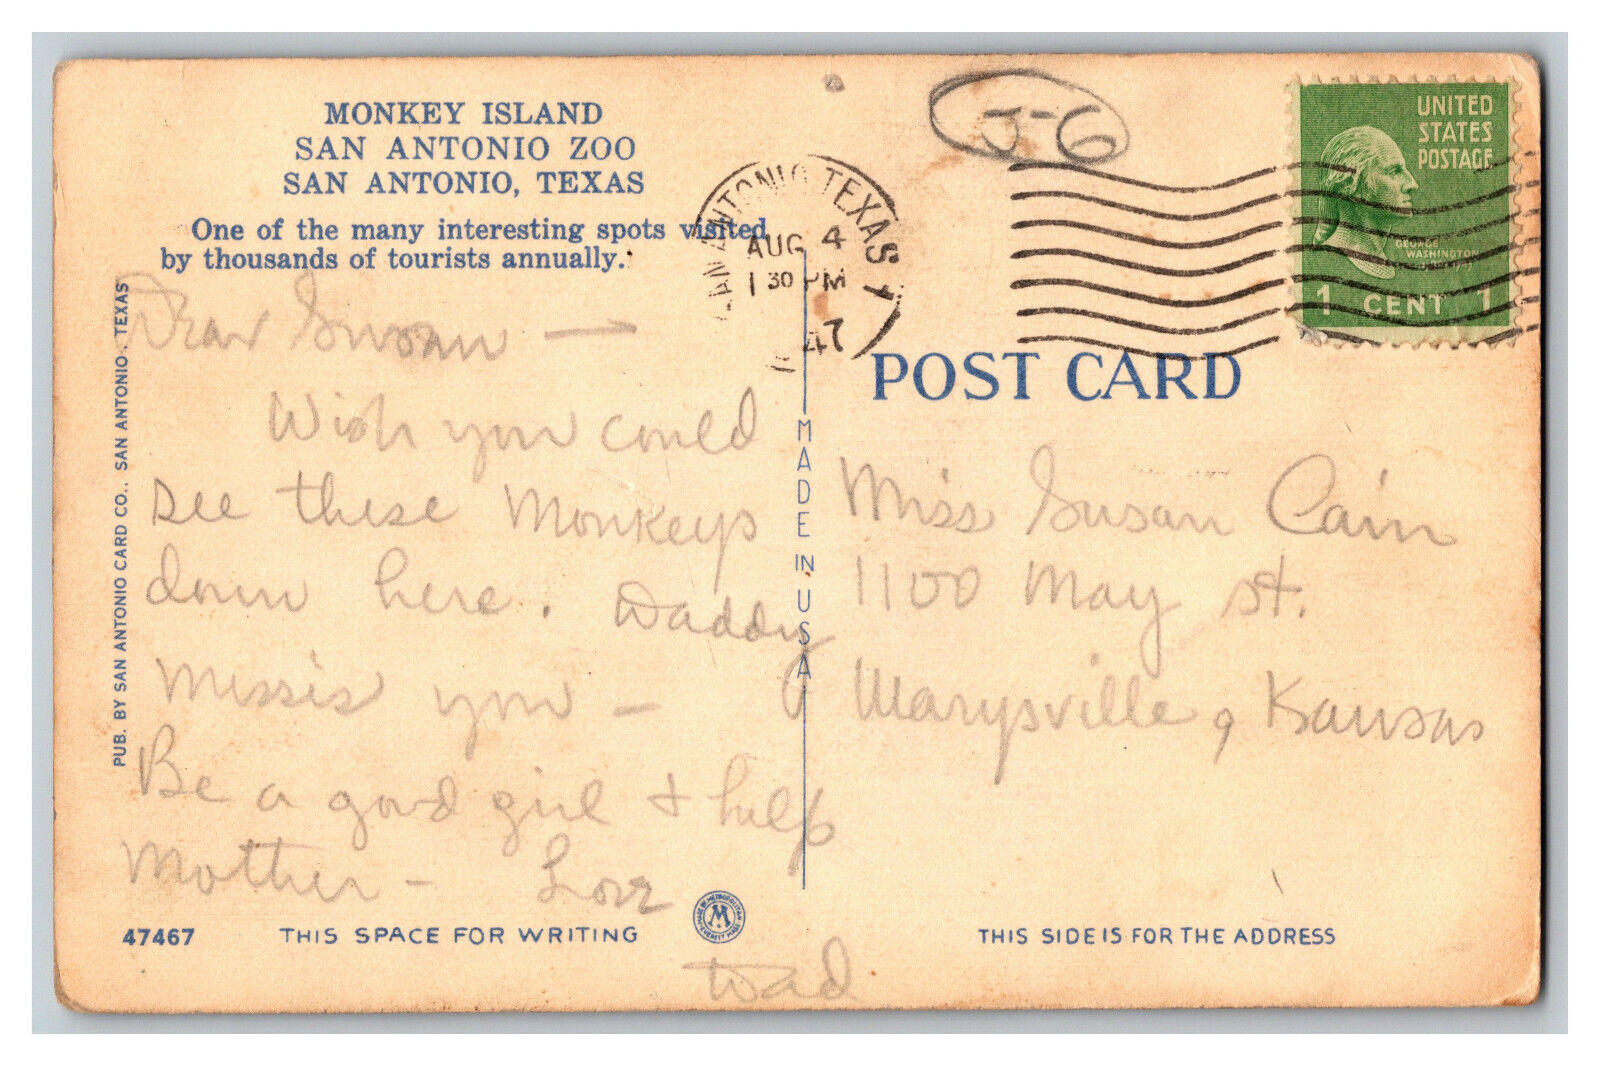 MONKEY ISLAND
SAN ANTONIO ZOO
SAN ANTONIO, TEXAS
One of the many interesting spots visited
by thousands of tourists annually.
Dear Susan —
Wish you could
see these Monkeys
down here. Daddy
Misses you —
Be a good girl & help
Mother - Love
Dad
PUB. BY SAN ANTONIO CARD CO., SAN ANTONIO, TEXAS
47467
THIS SPACE FOR WRITING
M
MADE IN U.S.A.
SAN ANTONIO, TEXAS 1
AUG 4
1 30 PM
47
J-6
UNITED
STATES
POSTAGE
GEORGE
WASHINGTON
1 CENT 1
POST CARD
Miss Susan Cain
1100 May St.
Marysville, Kansas
THIS SIDE IS FOR THE ADDRESS